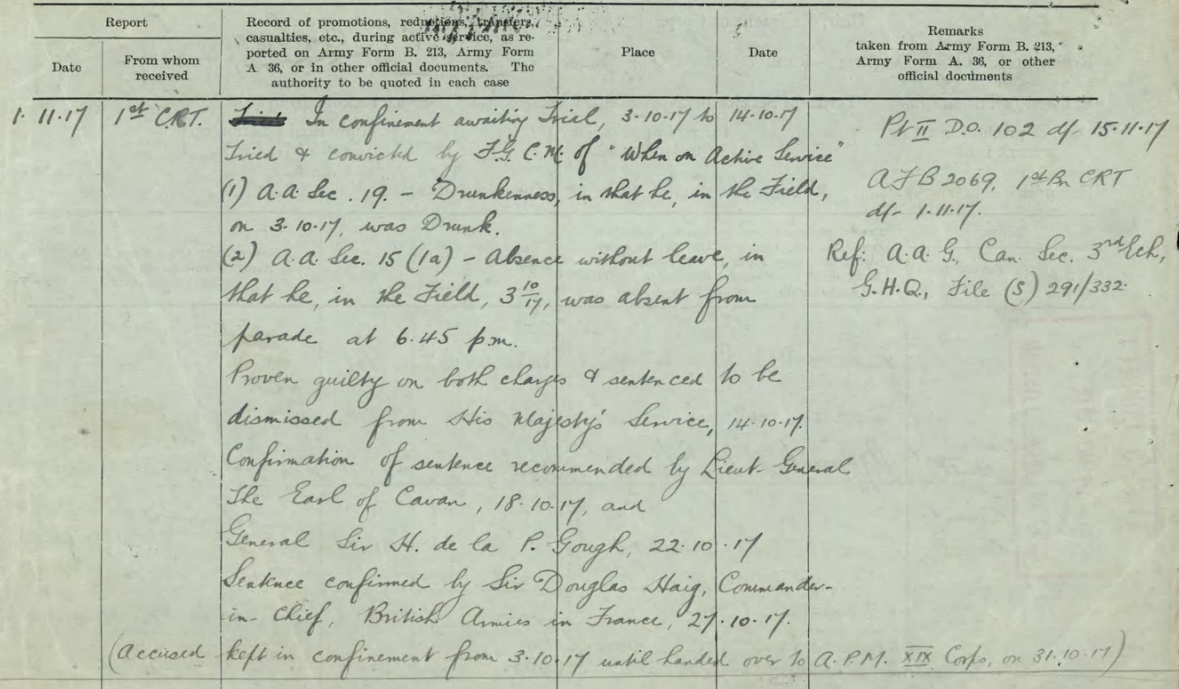 Report
Record of promotions, reductions, transfers,
casualties, etc., during active service, as re-
ported on Army Form B. 213, Army Form
A 36, or in other official documents. The
authority to be quoted in each case
Place
Date
Remarks
taken from Army Form B. 213,
Army Form A. 36, or other
official documents
Date
From whom
received
1·11·17 1st C.R.T. In confinement awaiting Trial, 3·10·17 to 14·10·17
Pt II D.O. 102 df 15·11·17
Tried & convicted by F.G.C.M. of "When on Active Service"
(1) A.A. Sec. 19. – Drunkenness, in that he, in the Field,
AFB 2069, 1st Bn CRT
on 3·10·17, was Drunk.
df– 1·11·17.
(2) A.A. Sec. 15 (1a) – Absence without leave, in
Ref: A.A.G., Can. Sec. 3rd Ech,
that he, in the Field, 3 10/17, was absent from
G.H.Q., File (S) 291/332·
parade at 6·45 p.m.
Proven guilty on both charges & sentenced to be
dismissed from His Majesty's Service, 14·10·17.
Confirmation of sentence recommended by Lieut– General
The Earl of Cavan, 18·10·17, and
General Sir H. de la P. Gough, 22·10·17
Sentence confirmed by Sir Douglas Haig, Commander–
in–Chief, British Armies in France, 27·10·17.
(Accused kept in confinement from 3·10·17 until handed over to A.P.M. XIX Corps, on 31·10·17)